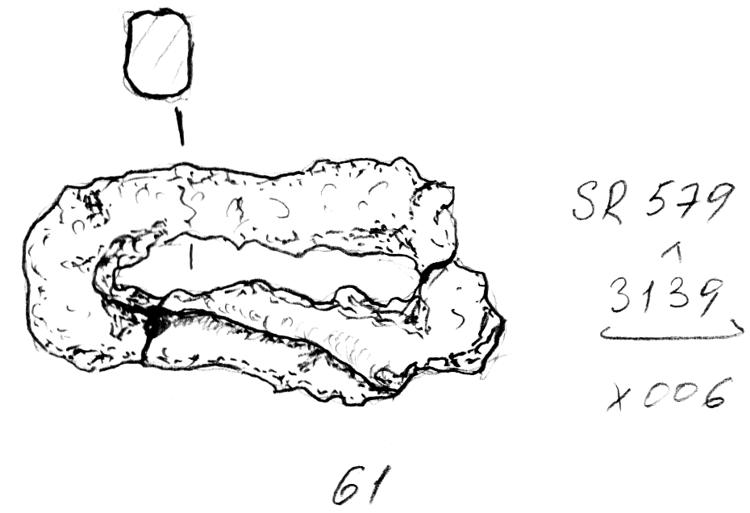 SR 579
^
3139
x006
61